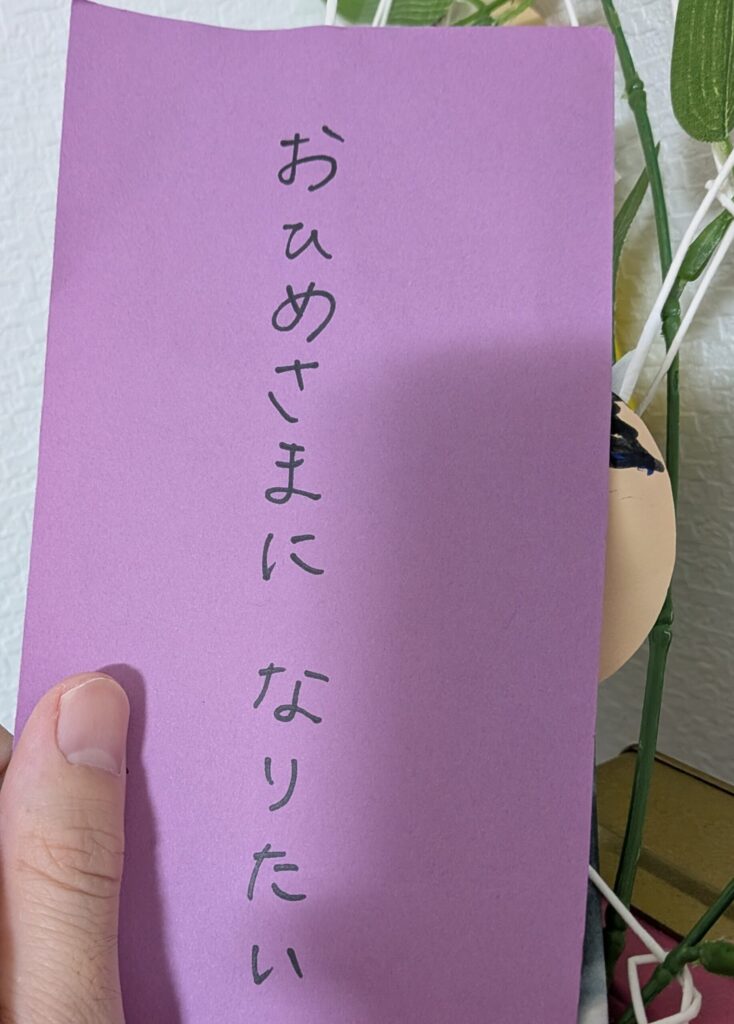 おひめさまに なりたい